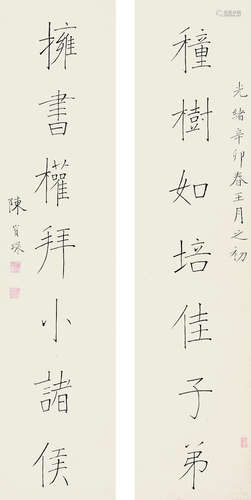 光緒辛卯春王月之初
種樹如培佳子弟
擁書權拜小諸侯